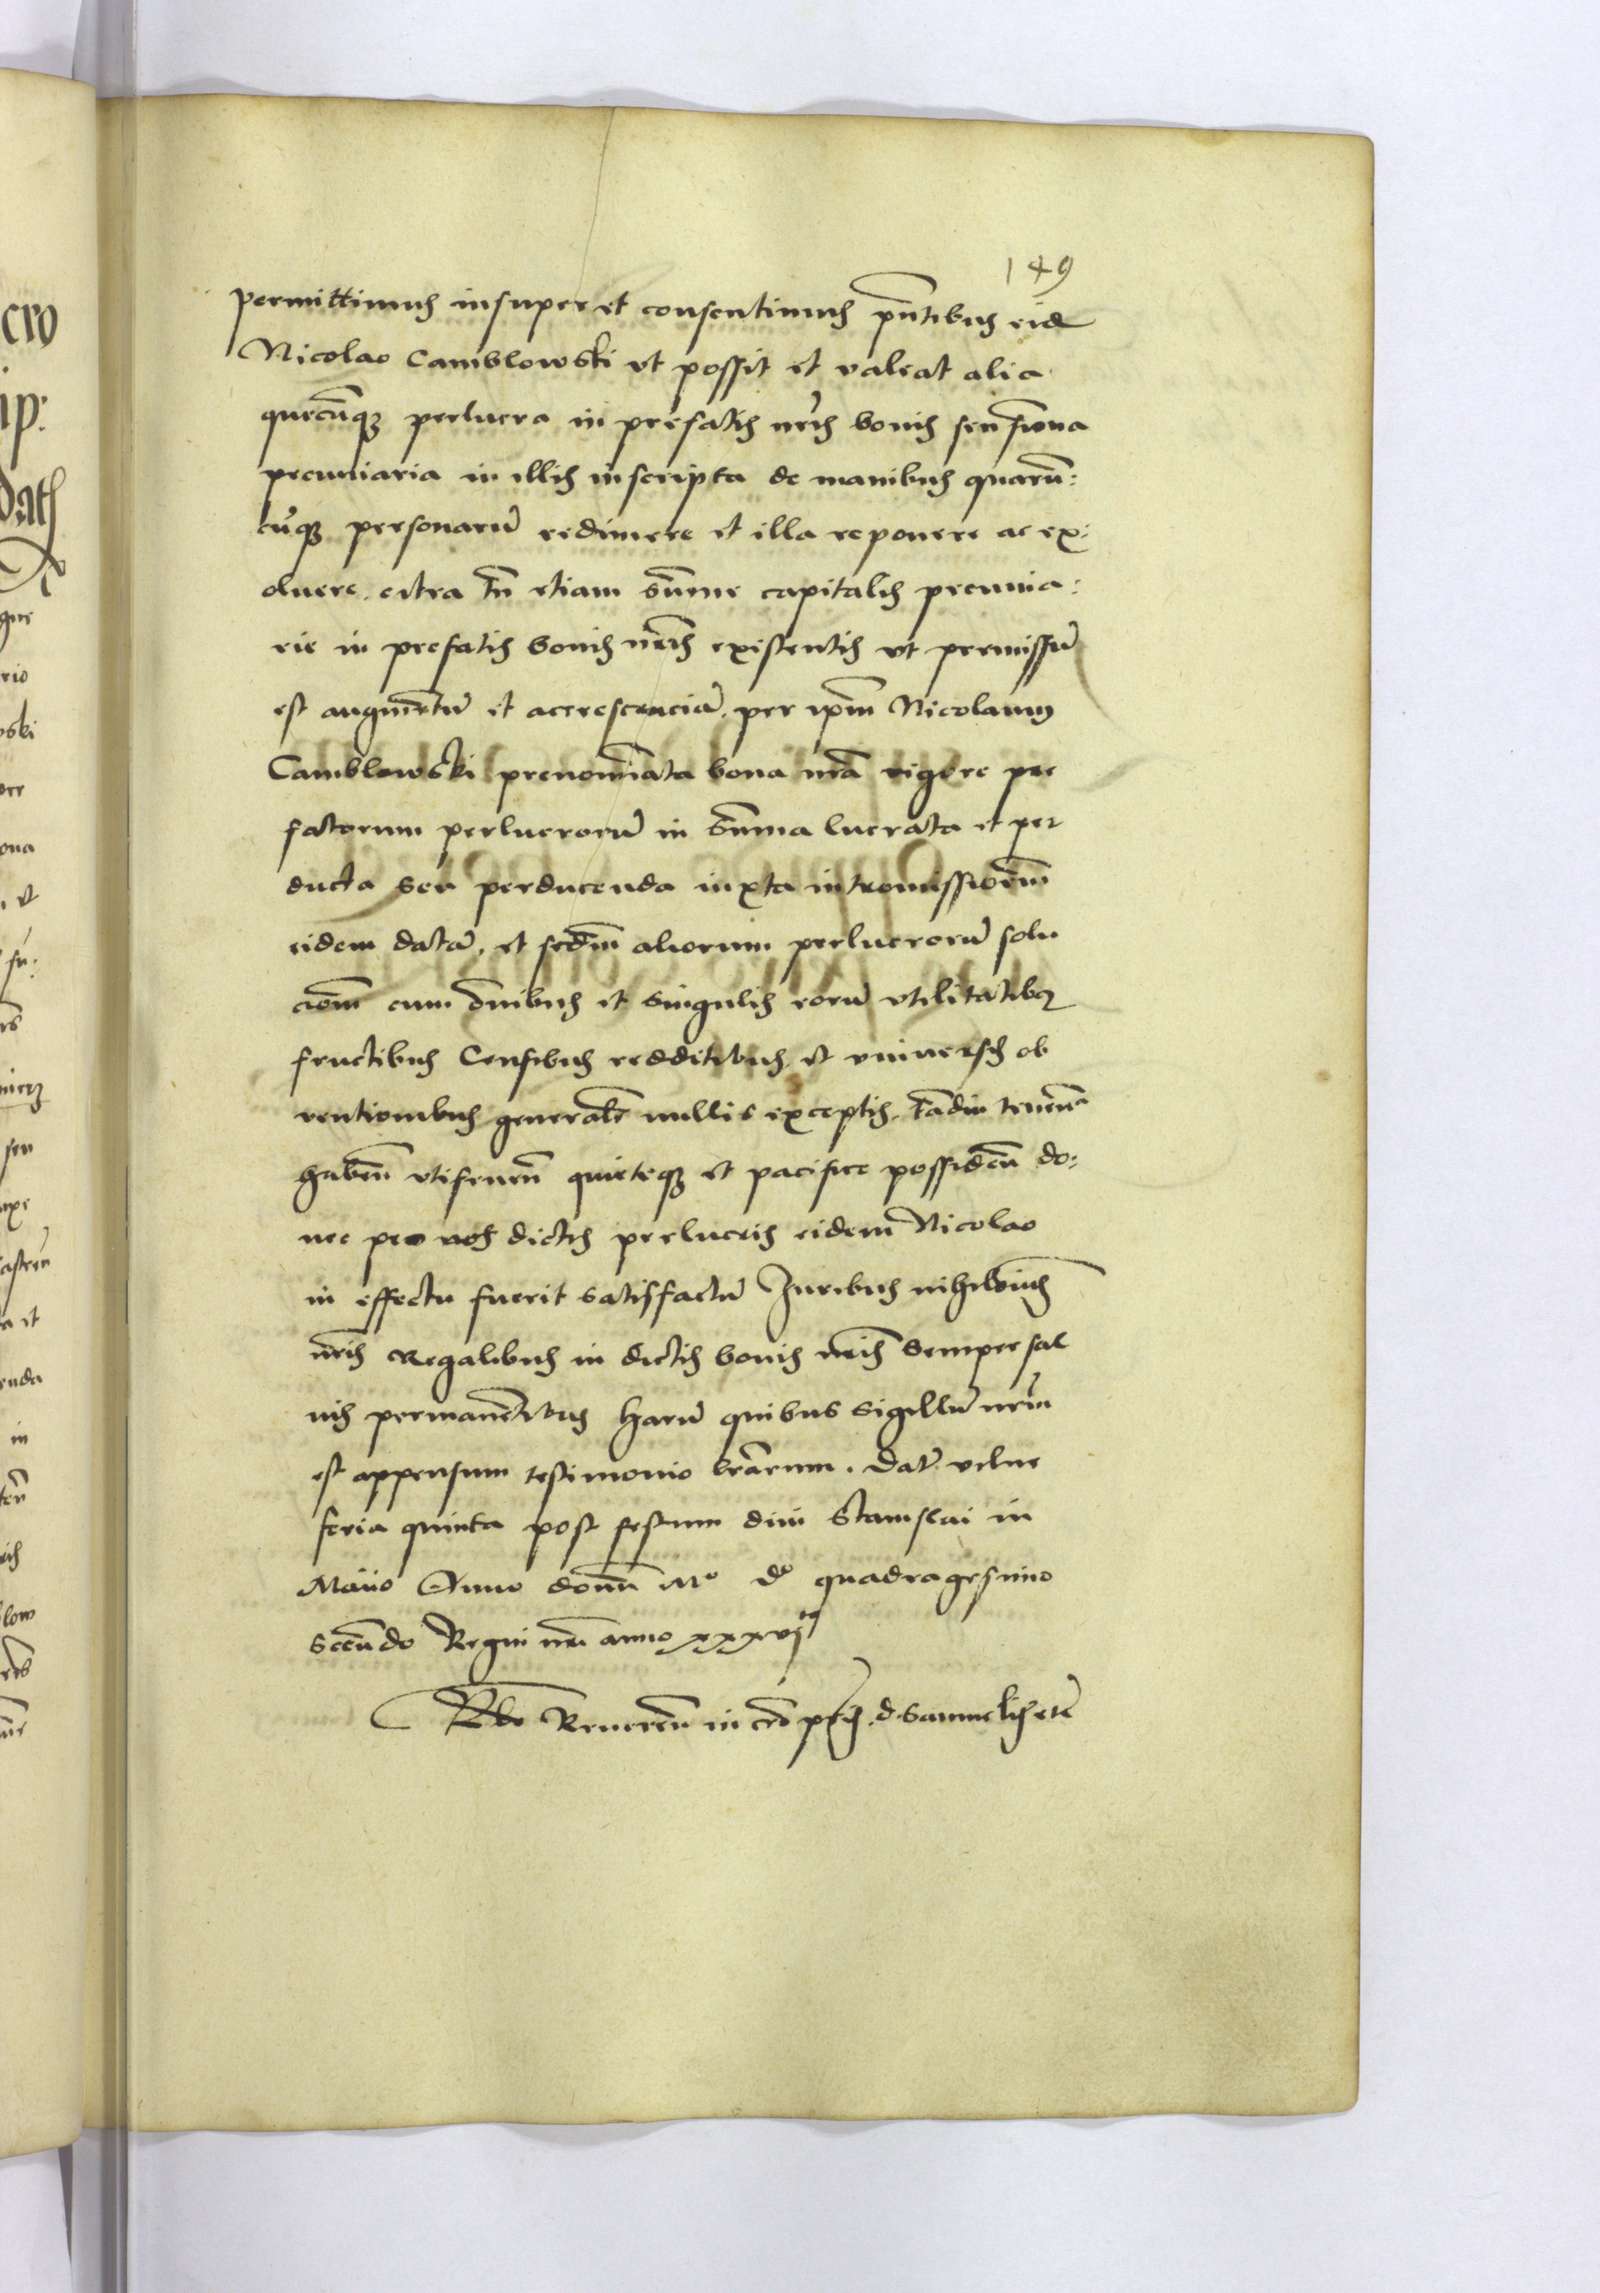 149
permittimus insuper et consentimus pntibus eid
Nicolao Camblowski vt possit et valeat alia
quecunq perlucra in prefatis nris bonis seu
pecuniaria in illis inscripta de manibus quarum:
cunq personarum redimere et illa reponere ac ex:
oluere. citra tn etiam summe capitalis pecunia:
rie in prefatis bonis nris existentis vt premissum
est augmentum et accrescenciam. per ipm Nicolaum
Camblowski prenominata bona nra vigore pre
fatorum perlucrorum in summa lucrata et per
ducta seu perducenda iuxta intromissionem
eidem datam. et secdm aliorum perlucrorum solu
cionem cum omnibus et singulis eorum vtilitatibus
fructibus Censibus redditibus et vniversis ob
ventionibus generalr nullis exceptis. tamdiu tenen
haben vtifruen quieteq et pacifice possiden do:
nec pro nos dictis perlucris eidem Nicolao
in effectu fuerit satisfactum Juribus nihilominus
nris Regalibus in dictis bonis nris semper sal
uis permanentibus Harum quibus sigillum nrum
est appensum testimonio lrarum. Dat vilne
feria quinta post festum diui Stanislai in
Maio Anno domini Mo do quadragesimo
secundo Regni nri anno xxxvjto
Rlo Reueren in cro pris. d. Samuelis etc